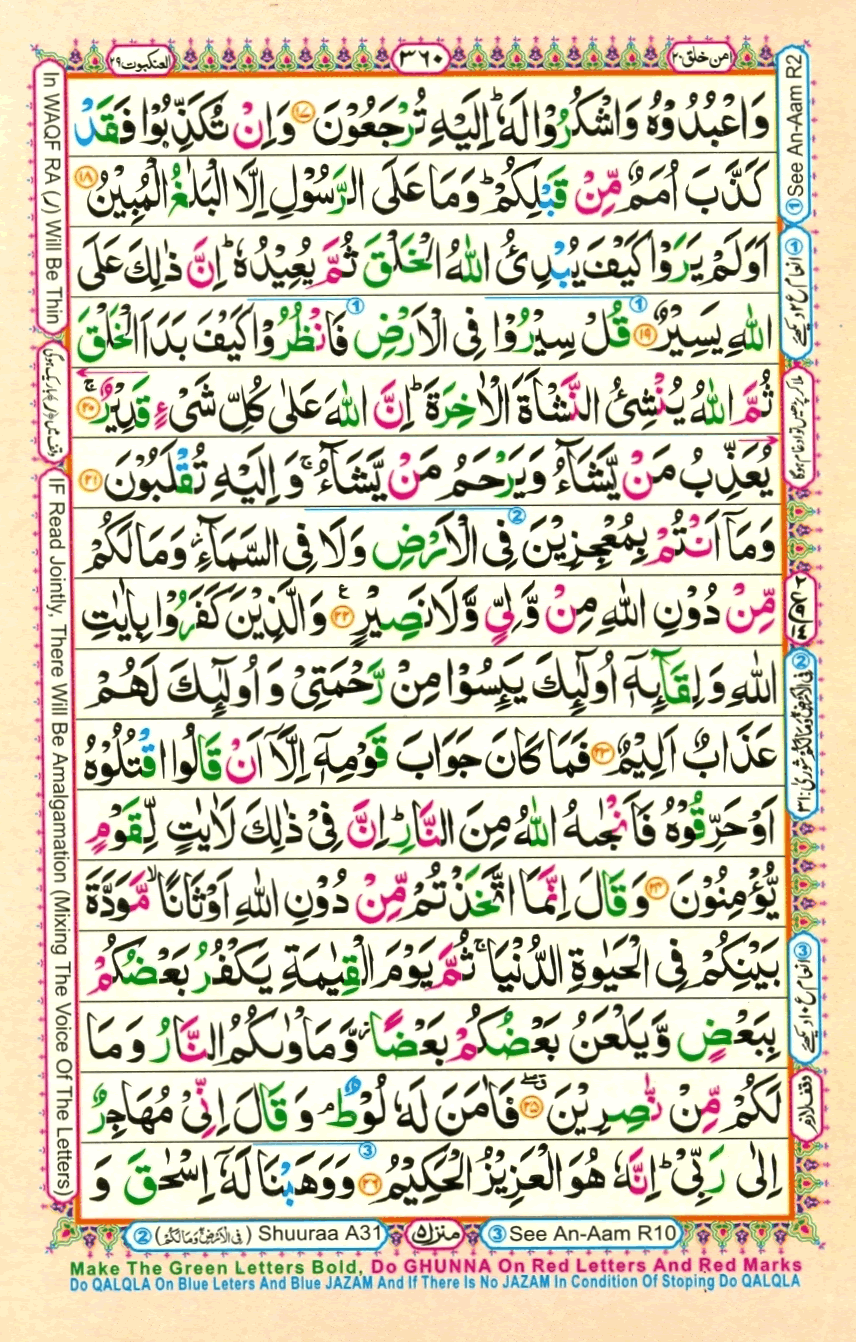 العنكبوت ٢٩
٣٦٠
امن خلق ٢٠
وَاعْبُدُوْهُ وَاشْكُرُوْا لَهٗ ؕ اِلَيْهِ تُرْجَعُوْنَ ﴿۱۷﴾ وَاِنْ تُكَذِّبُوْا فَقَدْ
كَذَّبَ اُمَمٌ مِّنْ قَبْلِكُمْ ؕ وَمَا عَلَى الرَّسُوْلِ اِلَّا الْبَلٰغُ الْمُبِيْنُ ﴿۱۸﴾
اَوَلَمْ يَرَوْا كَيْفَ يُبْدِئُ اللّٰهُ الْخَلْقَ ثُمَّ يُعِيْدُهٗ ؕ اِنَّ ذٰلِكَ عَلَى
اللّٰهِ يَسِيْرٌ ﴿۱۹﴾ قُلْ سِيْرُوْا فِى الْاَرْضِ فَانْظُرُوْا كَيْفَ بَدَاَ الْخَلْقَ
ثُمَّ اللّٰهُ يُنْشِئُ النَّشْاَةَ الْاٰخِرَةَ ؕ اِنَّ اللّٰهَ عَلٰى كُلِّ شَىْءٍ قَدِيْرٌ ۚ ﴿۲۰﴾
يُعَذِّبُ مَنْ يَّشَآءُ وَيَرْحَمُ مَنْ يَّشَآءُ ۚ وَاِلَيْهِ تُقْلَبُوْنَ ﴿۲۱﴾
وَمَاۤ اَنْتُمْ بِمُعْجِزِيْنَ فِى الْاَرْضِ وَلَا فِى السَّمَآءِ ؗ وَمَا لَكُمْ
مِّنْ دُوْنِ اللّٰهِ مِنْ وَّلِىٍّ وَّلَا نَصِيْرٍ ﴿۲۲﴾ ع وَالَّذِيْنَ كَفَرُوْا بِاٰيٰتِ
اللّٰهِ وَلِقَآئِهٖۤ اُولٰٓئِكَ يَئِسُوْا مِنْ رَّحْمَتِىْ وَاُولٰٓئِكَ لَهُمْ
عَذَابٌ اَلِيْمٌ ﴿۲۳﴾ فَمَا كَانَ جَوَابَ قَوْمِهٖۤ اِلَّاۤ اَنْ قَالُوا اقْتُلُوْهُ
اَوْ حَرِّقُوْهُ فَاَنْجٰىهُ اللّٰهُ مِنَ النَّارِ ؕ اِنَّ فِىْ ذٰلِكَ لَاٰيٰتٍ لِّقَوْمٍ
يُّؤْمِنُوْنَ ﴿۲۴﴾ وَقَالَ اِنَّمَا اتَّخَذْتُمْ مِّنْ دُوْنِ اللّٰهِ اَوْثَانًا ۙ مَّوَدَّةَ
بَيْنِكُمْ فِى الْحَيٰوةِ الدُّنْيَا ۚ ثُمَّ يَوْمَ الْقِيٰمَةِ يَكْفُرُ بَعْضُكُمْ
بِبَعْضٍ وَّيَلْعَنُ بَعْضُكُمْ بَعْضًا ؗ وَّمَاْوٰىكُمُ النَّارُ وَمَا
لَكُمْ مِّنْ نّٰصِرِيْنَ ﴿۲۵﴾ فَاٰمَنَ لَهٗ لُوْطٌ ۘ وَقَالَ اِنِّىْ مُهَاجِرٌ
اِلٰى رَبِّىْ ؕ اِنَّهٗ هُوَ الْعَزِيْزُ الْحَكِيْمُ ﴿۲۶﴾ وَوَهَبْنَا لَهٗۤ اِسْحٰقَ وَ
In WAQF RA (ر) Will Be Thin
وقف میں (ر) باریک ہوگی
IF Read Jointly, There Will Be Amalgamation (Mixing The Voice Of The Letters)
① See An-Aam R2
① انعام ع ۲ دیکھیے
ملا کر پڑھیں تو ادغام ہوگا
② فی الارض وما لکم شوریٰ: ۳۱
③ انعام ع ۱۰ دیکھیے
وقف لازم
② (فی الارض وما لکم) Shuuraa A31
منزل ۵
③ See An-Aam R10
Make The Green Letters Bold, Do GHUNNA On Red Letters And Red Marks
Do QALQLA On Blue Leters And Blue JAZAM And If There Is No JAZAM In Condition Of Stoping Do QALQLA